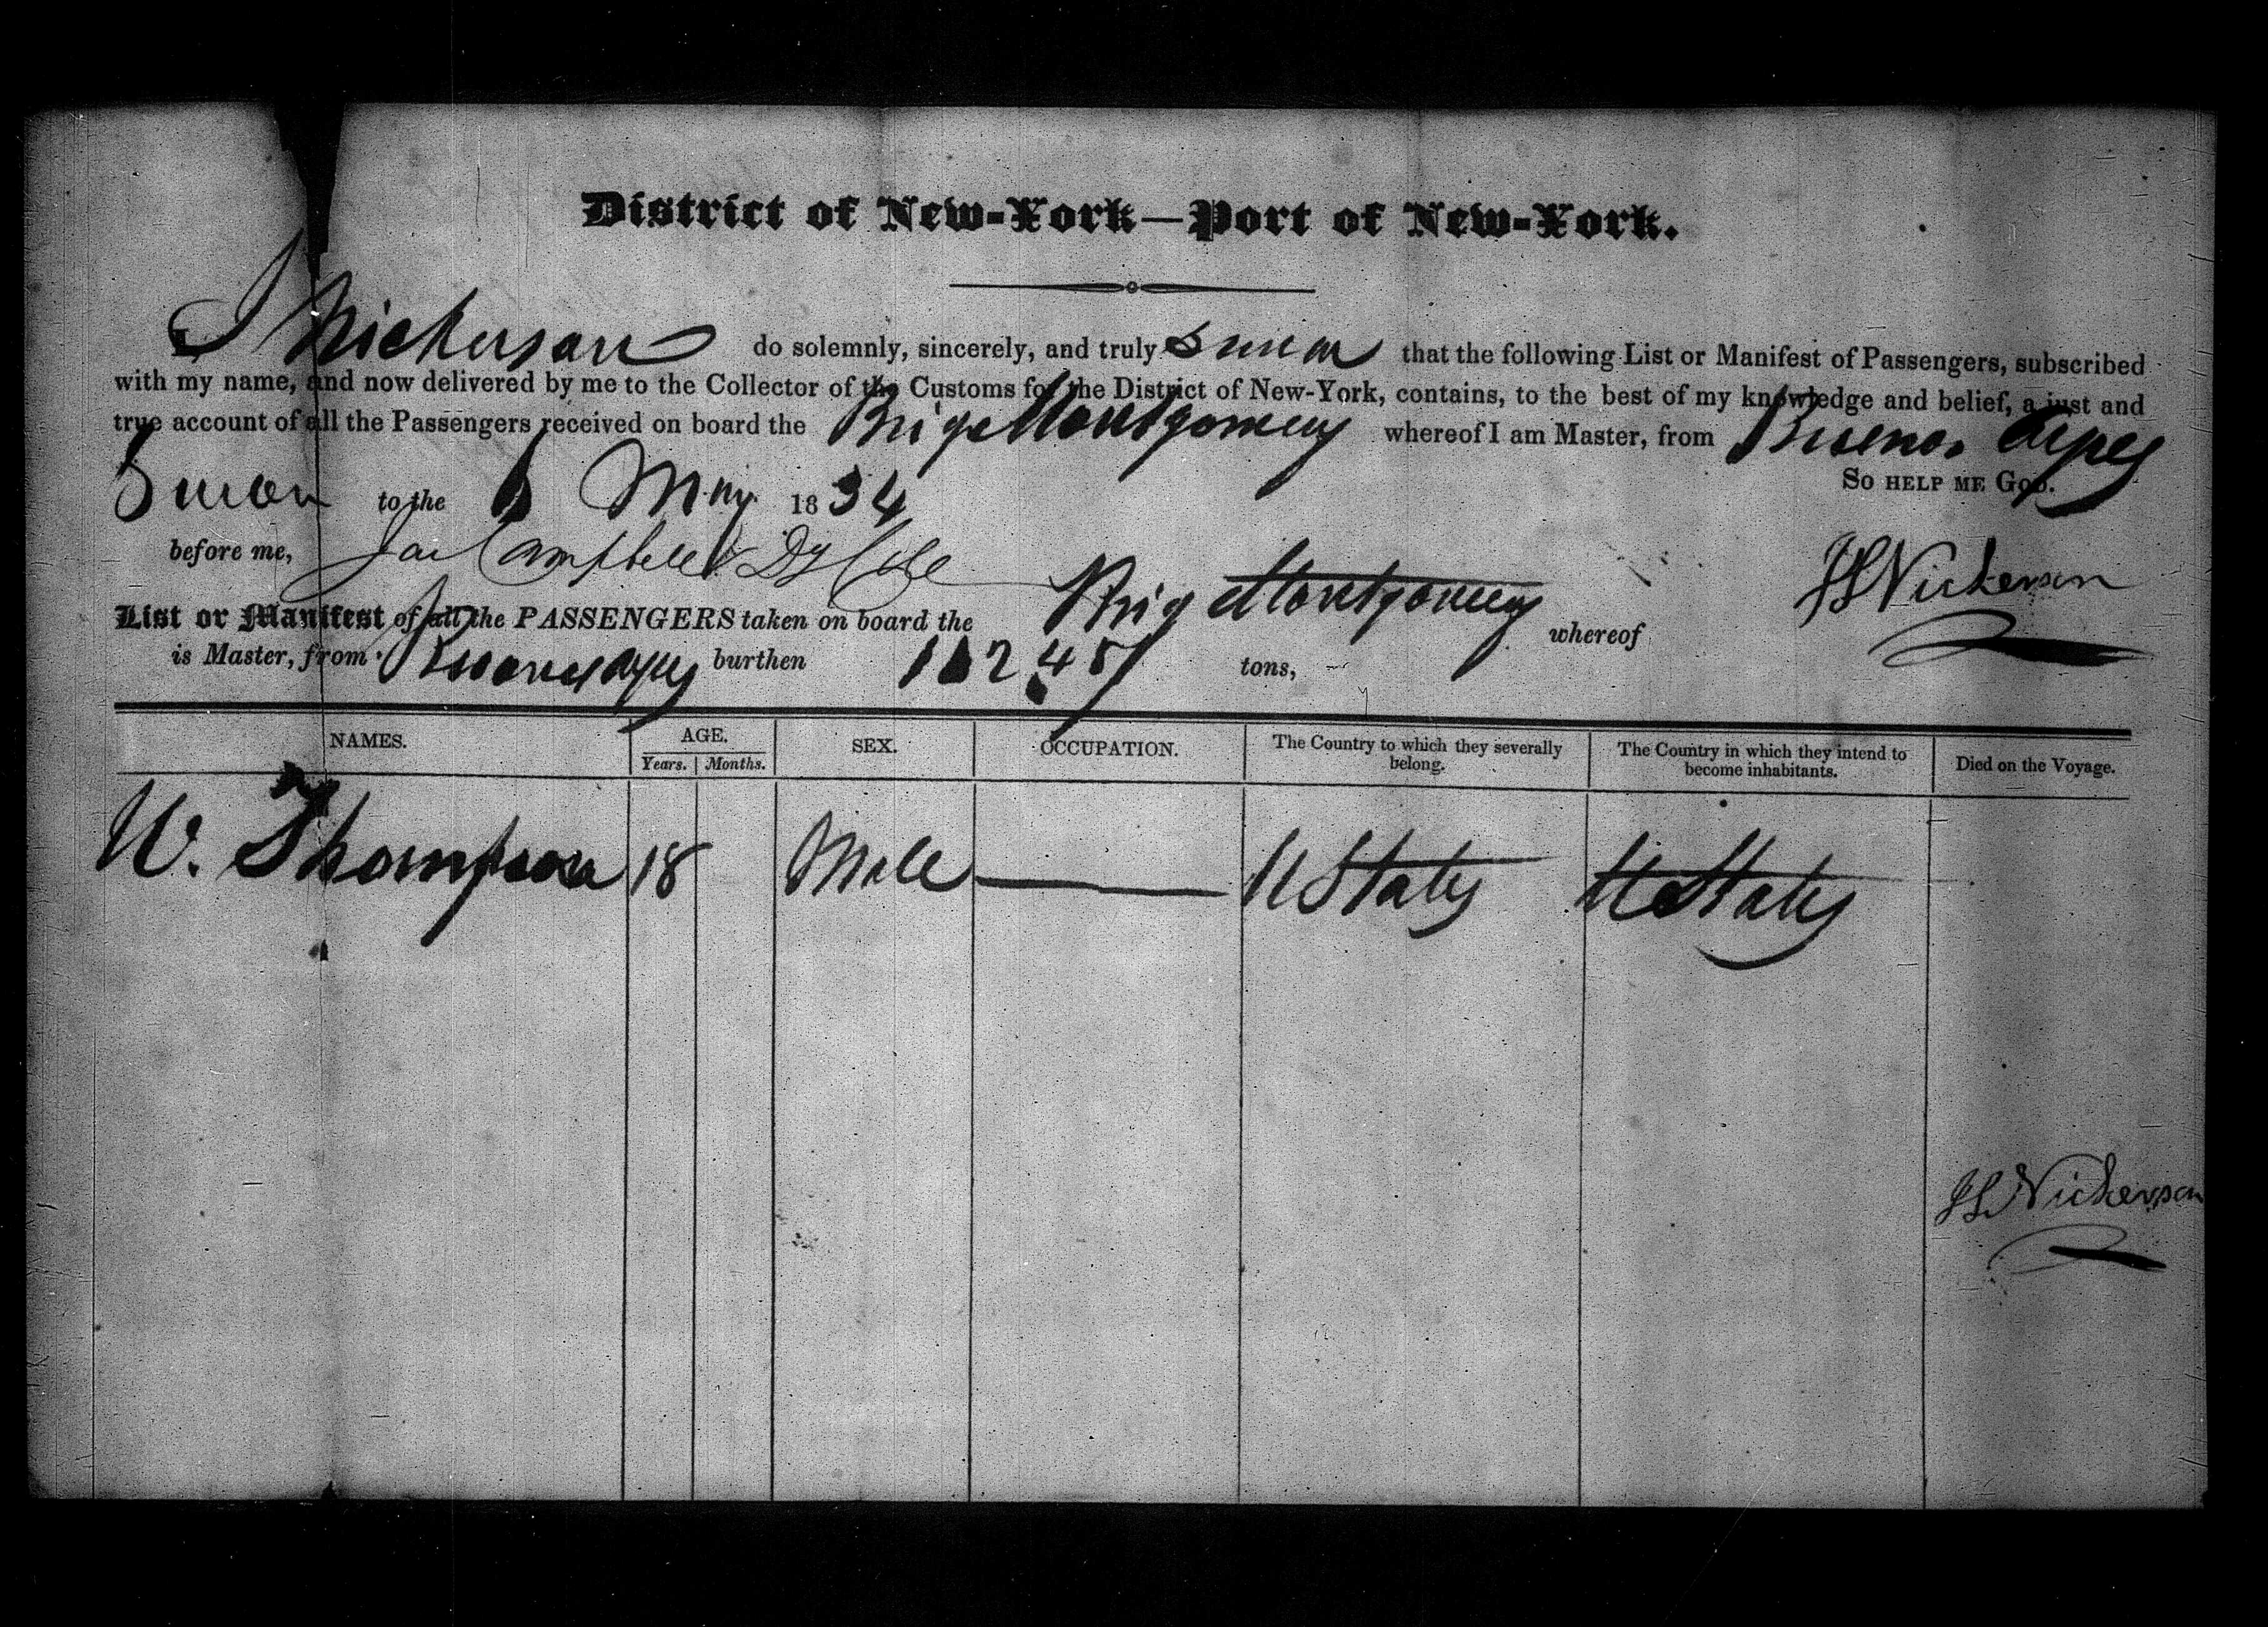 District of New-York—Port of New-York.
I Nickerson do solemnly, sincerely, and truly swear that the following List or Manifest of Passengers, subscribed
with my name, and now delivered by me to the Collector of the Customs for the District of New-York, contains, to the best of my knowledge and belief, a just and
true account of all the Passengers received on board the Brig Montgomery whereof I am Master, from Buenos Ayres
So help me God.
Sworn to the 6 May 1834
before me, Jas Campbell Dy Col
J S Nickerson
List or Manifest of all the PASSENGERS taken on board the Brig Montgomery whereof
is Master, from Buenos Ayres burthen tons,
NAMES. AGE. SEX. OCCUPATION. The Country to which they severally belong. The Country in which they intend to become inhabitants. Died on the Voyage.
Years. Months.
W. Thompson 18 Male — U States U States
J S Nickerson